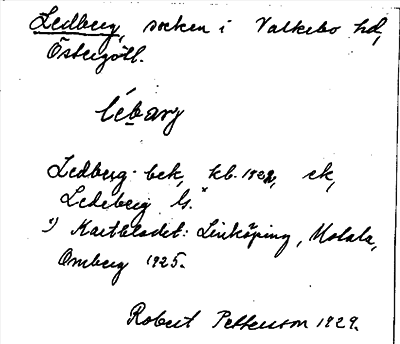 Ledberg, socken i Valkebo hd,
Östergötl.
lébarg
Ledberg bek, kb. 1922, ek,
Ledeberg G. x
x) Kartbladet: Linköping, Motala,
Omberg 1925.
Robert Pettersson 1929.